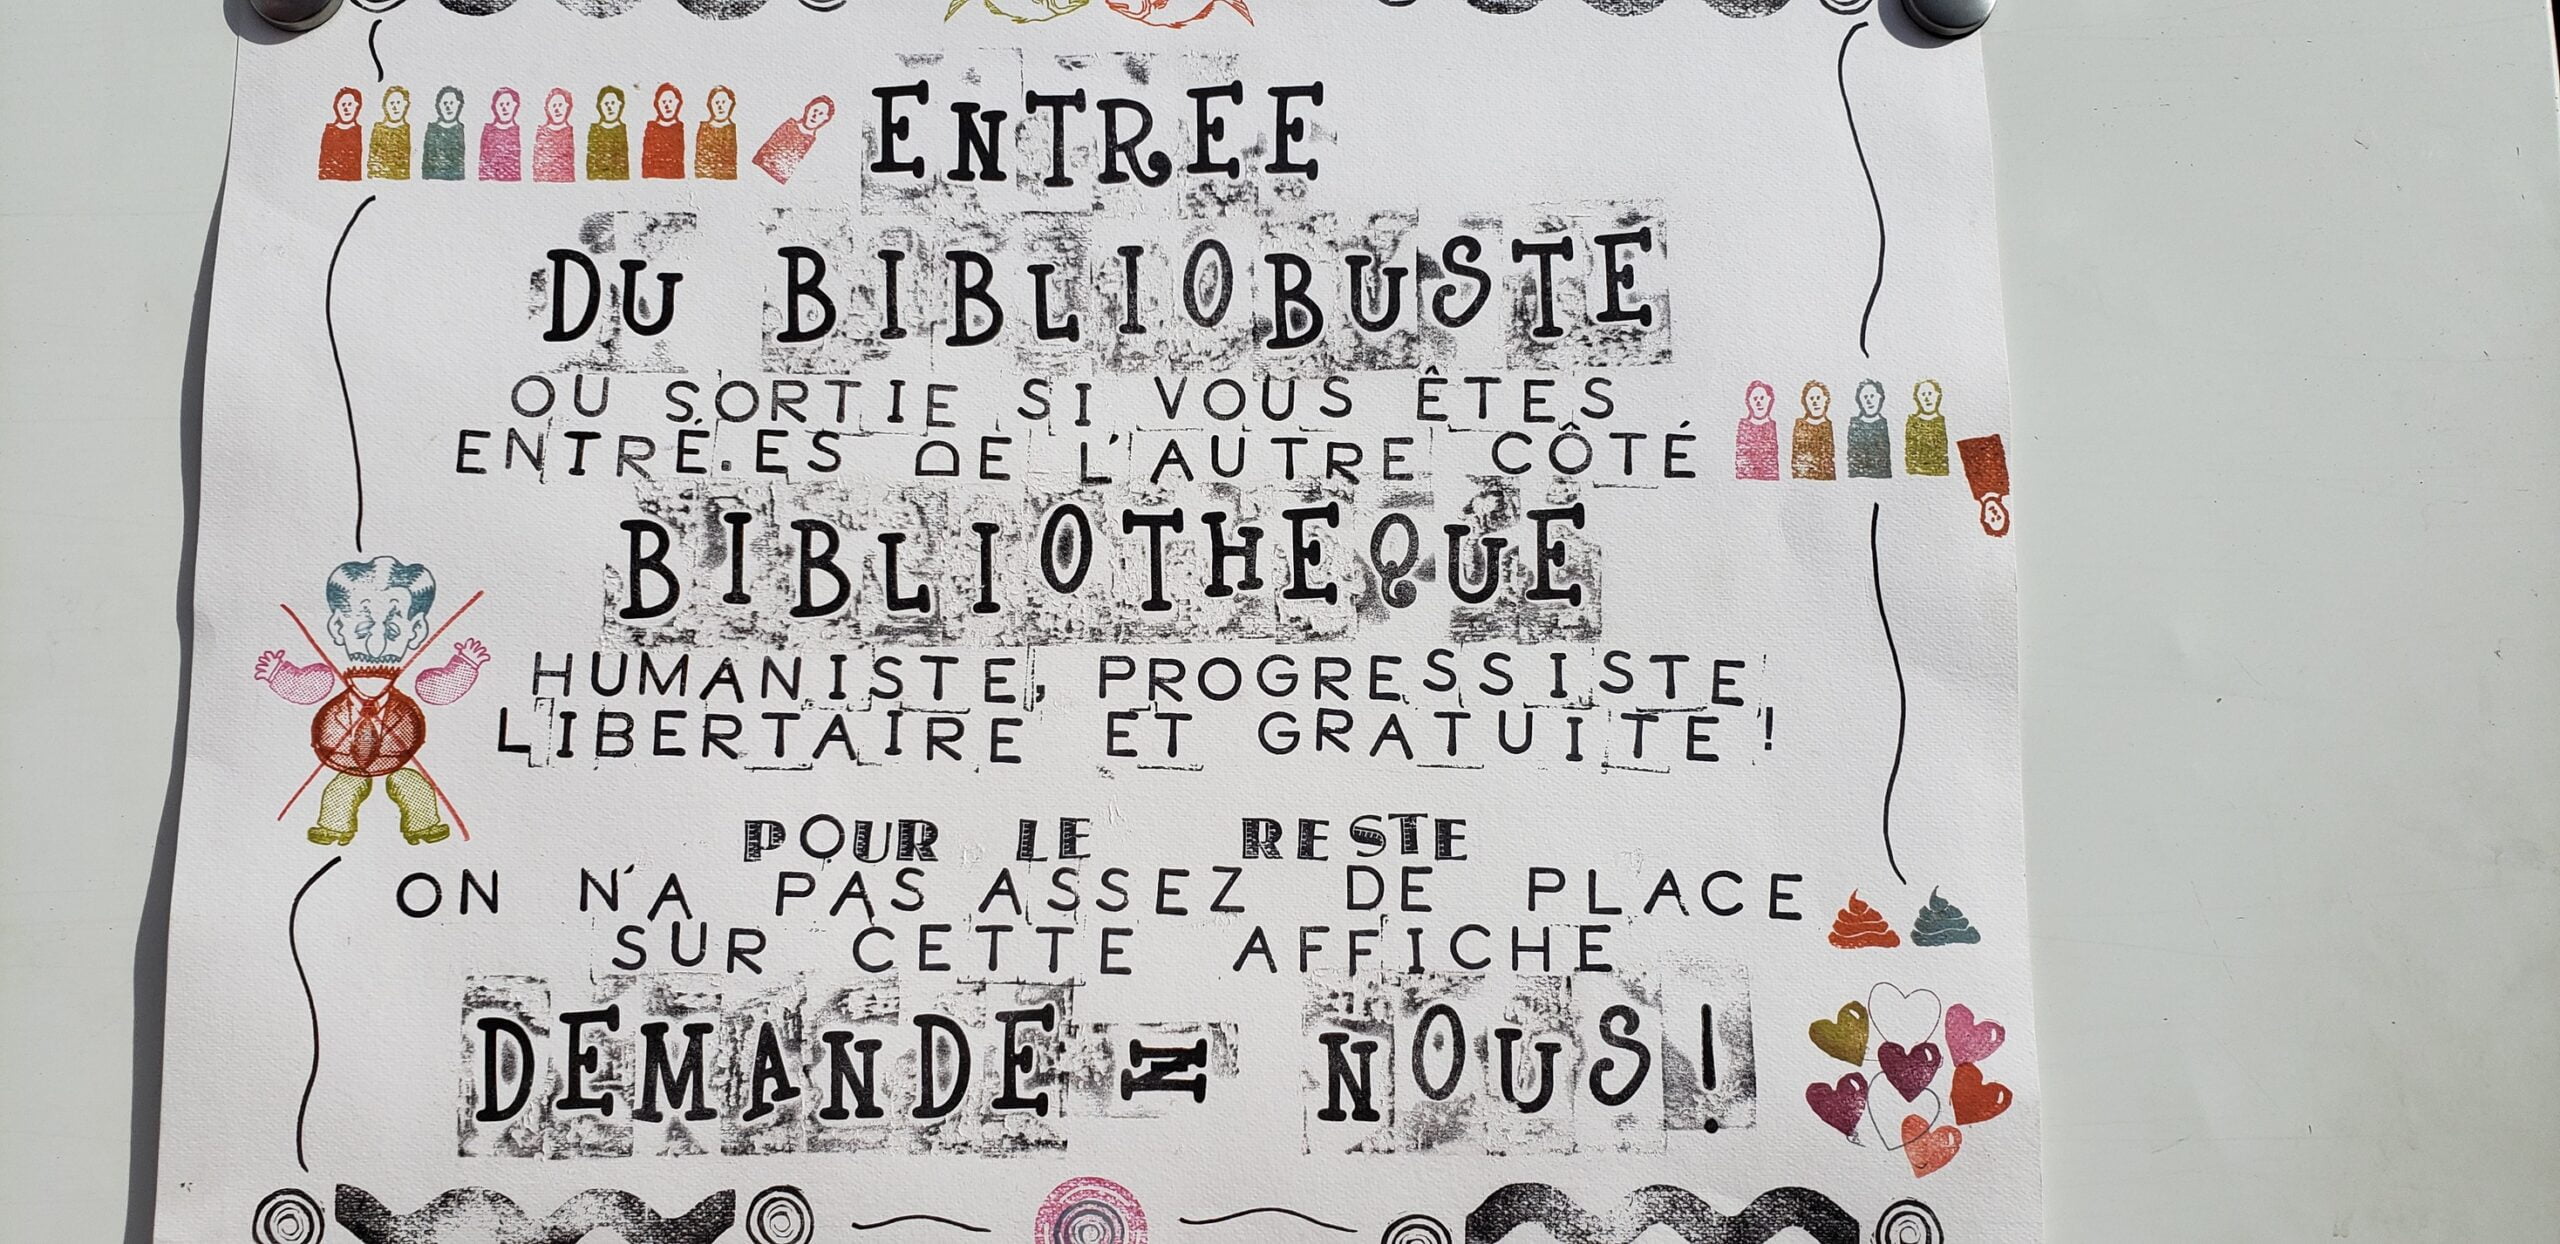 ENTREE
DU BIBLIOBUSTE
OU SORTIE SI VOUS ÊTES
ENTRÉ.ES DE L'AUTRE CÔTÉ
BIBLIOTHEQUE
HUMANISTE, PROGRESSISTE
LIBERTAIRE ET GRATUITE !
POUR LE RESTE
ON N'A PAS ASSEZ DE PLACE
SUR CETTE AFFICHE
DEMANDE Z NOUS !